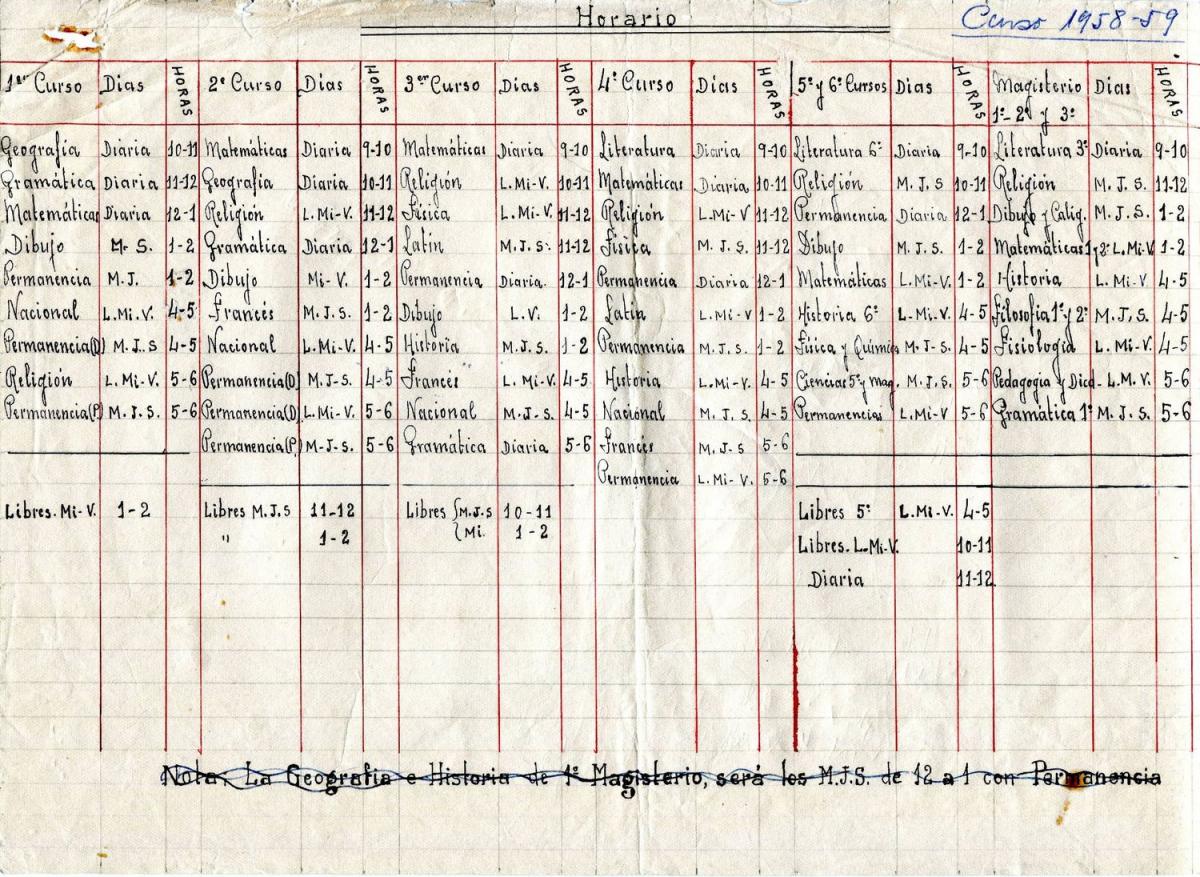 Horario
Curso 1958-59
1er Curso Días HORAS 2º Curso Días HORAS 3er Curso Días HORAS 4º Curso Días HORAS 5º y 6º Cursos Días HORAS Magisterio Días HORAS
1º- 2º y 3º
Geografía Diaria 10-11 Matemáticas Diaria 9-10 Matemáticas Diaria 9-10 Literatura Diaria 9-10 Literatura 6º Diaria 9-10 Literatura 3º Diaria 9-10
Gramática Diaria 11-12 Geografía Diaria 10-11 Religión L.Mi-V. 10-11 Matemáticas Diaria 10-11 Religión M.J.S 10-11 Religión M.J.S. 11-12
Matemáticas Diaria 12-1 Religión L.Mi-V. 11-12 Física L.Mi-V. 11-12 Religión L.Mi-V 11-12 Permanencia Diaria 12-1 Dibujo y Calig. M.J.S. 1-2
Dibujo M.S. 1-2 Gramática Diaria 12-1 Latín M.J.S. 11-12 Física M.J.S. 11-12 Dibujo M.J.S. 1-2 Matemáticas 1 y 2º L.Mi-V 1-2
Permanencia M.J. 1-2 Dibujo Mi-V. 1-2 Permanencia Diaria. 12-1 Permanencia Diaria 12-1 Matemáticas L.Mi-V. 1-2 Historia L.Mi-V. 4-5
Nacional L.Mi-V. 4-5 Francés M.J.S. 1-2 Dibujo L.V. 1-2 Latín L.Mi-V 1-2 Historia 6º L-Mi-V. 4-5 Filosofía 1º y 2º M.J.S. 4-5
Permanencia(D) M.J.S 4-5 Nacional L.Mi-V. 4-5 Historia M.J.S. 1-2 Permanencia M.J.S. 1-2 Física y Química M.J-S. 4-5 Fisiología L.Mi-V. 4-5
Religión L.Mi-V. 5-6 Permanencia(D) M.J-S. 4-5 Francés L.Mi-V. 4-5 Historia L.Mi-V. 4-5 Ciencias 5º y mag. M.J.S. 5-6 Pedagogía y Dicd- L.M.V. 5-6
Permanencia(P) M.J.S. 5-6 Permanencia(D) L.Mi-V. 5-6 Nacional M.J-S. 4-5 Nacional M.J.S. 4-5 Permanencias L.Mi-V 5-6 Gramática 1º M.J.S. 5-6
Permanencia(P) M-J-S. 5-6 Gramática Diaria 5-6 Francés M.J.S 5-6
Permanencia L.Mi-V. 5-6
Libres. Mi-V. 1-2 Libres M.J.S 11-12 Libres { M.J.S 10-11 Libres 5º L.Mi-V. 4-5
" 1-2 { Mi. 1-2 Libres. L.Mi-V. 10-11
Diaria 11-12
Nota: La Geografía e Historia de 1º Magisterio, será los M.J.S. de 12 a 1 con Permanencia